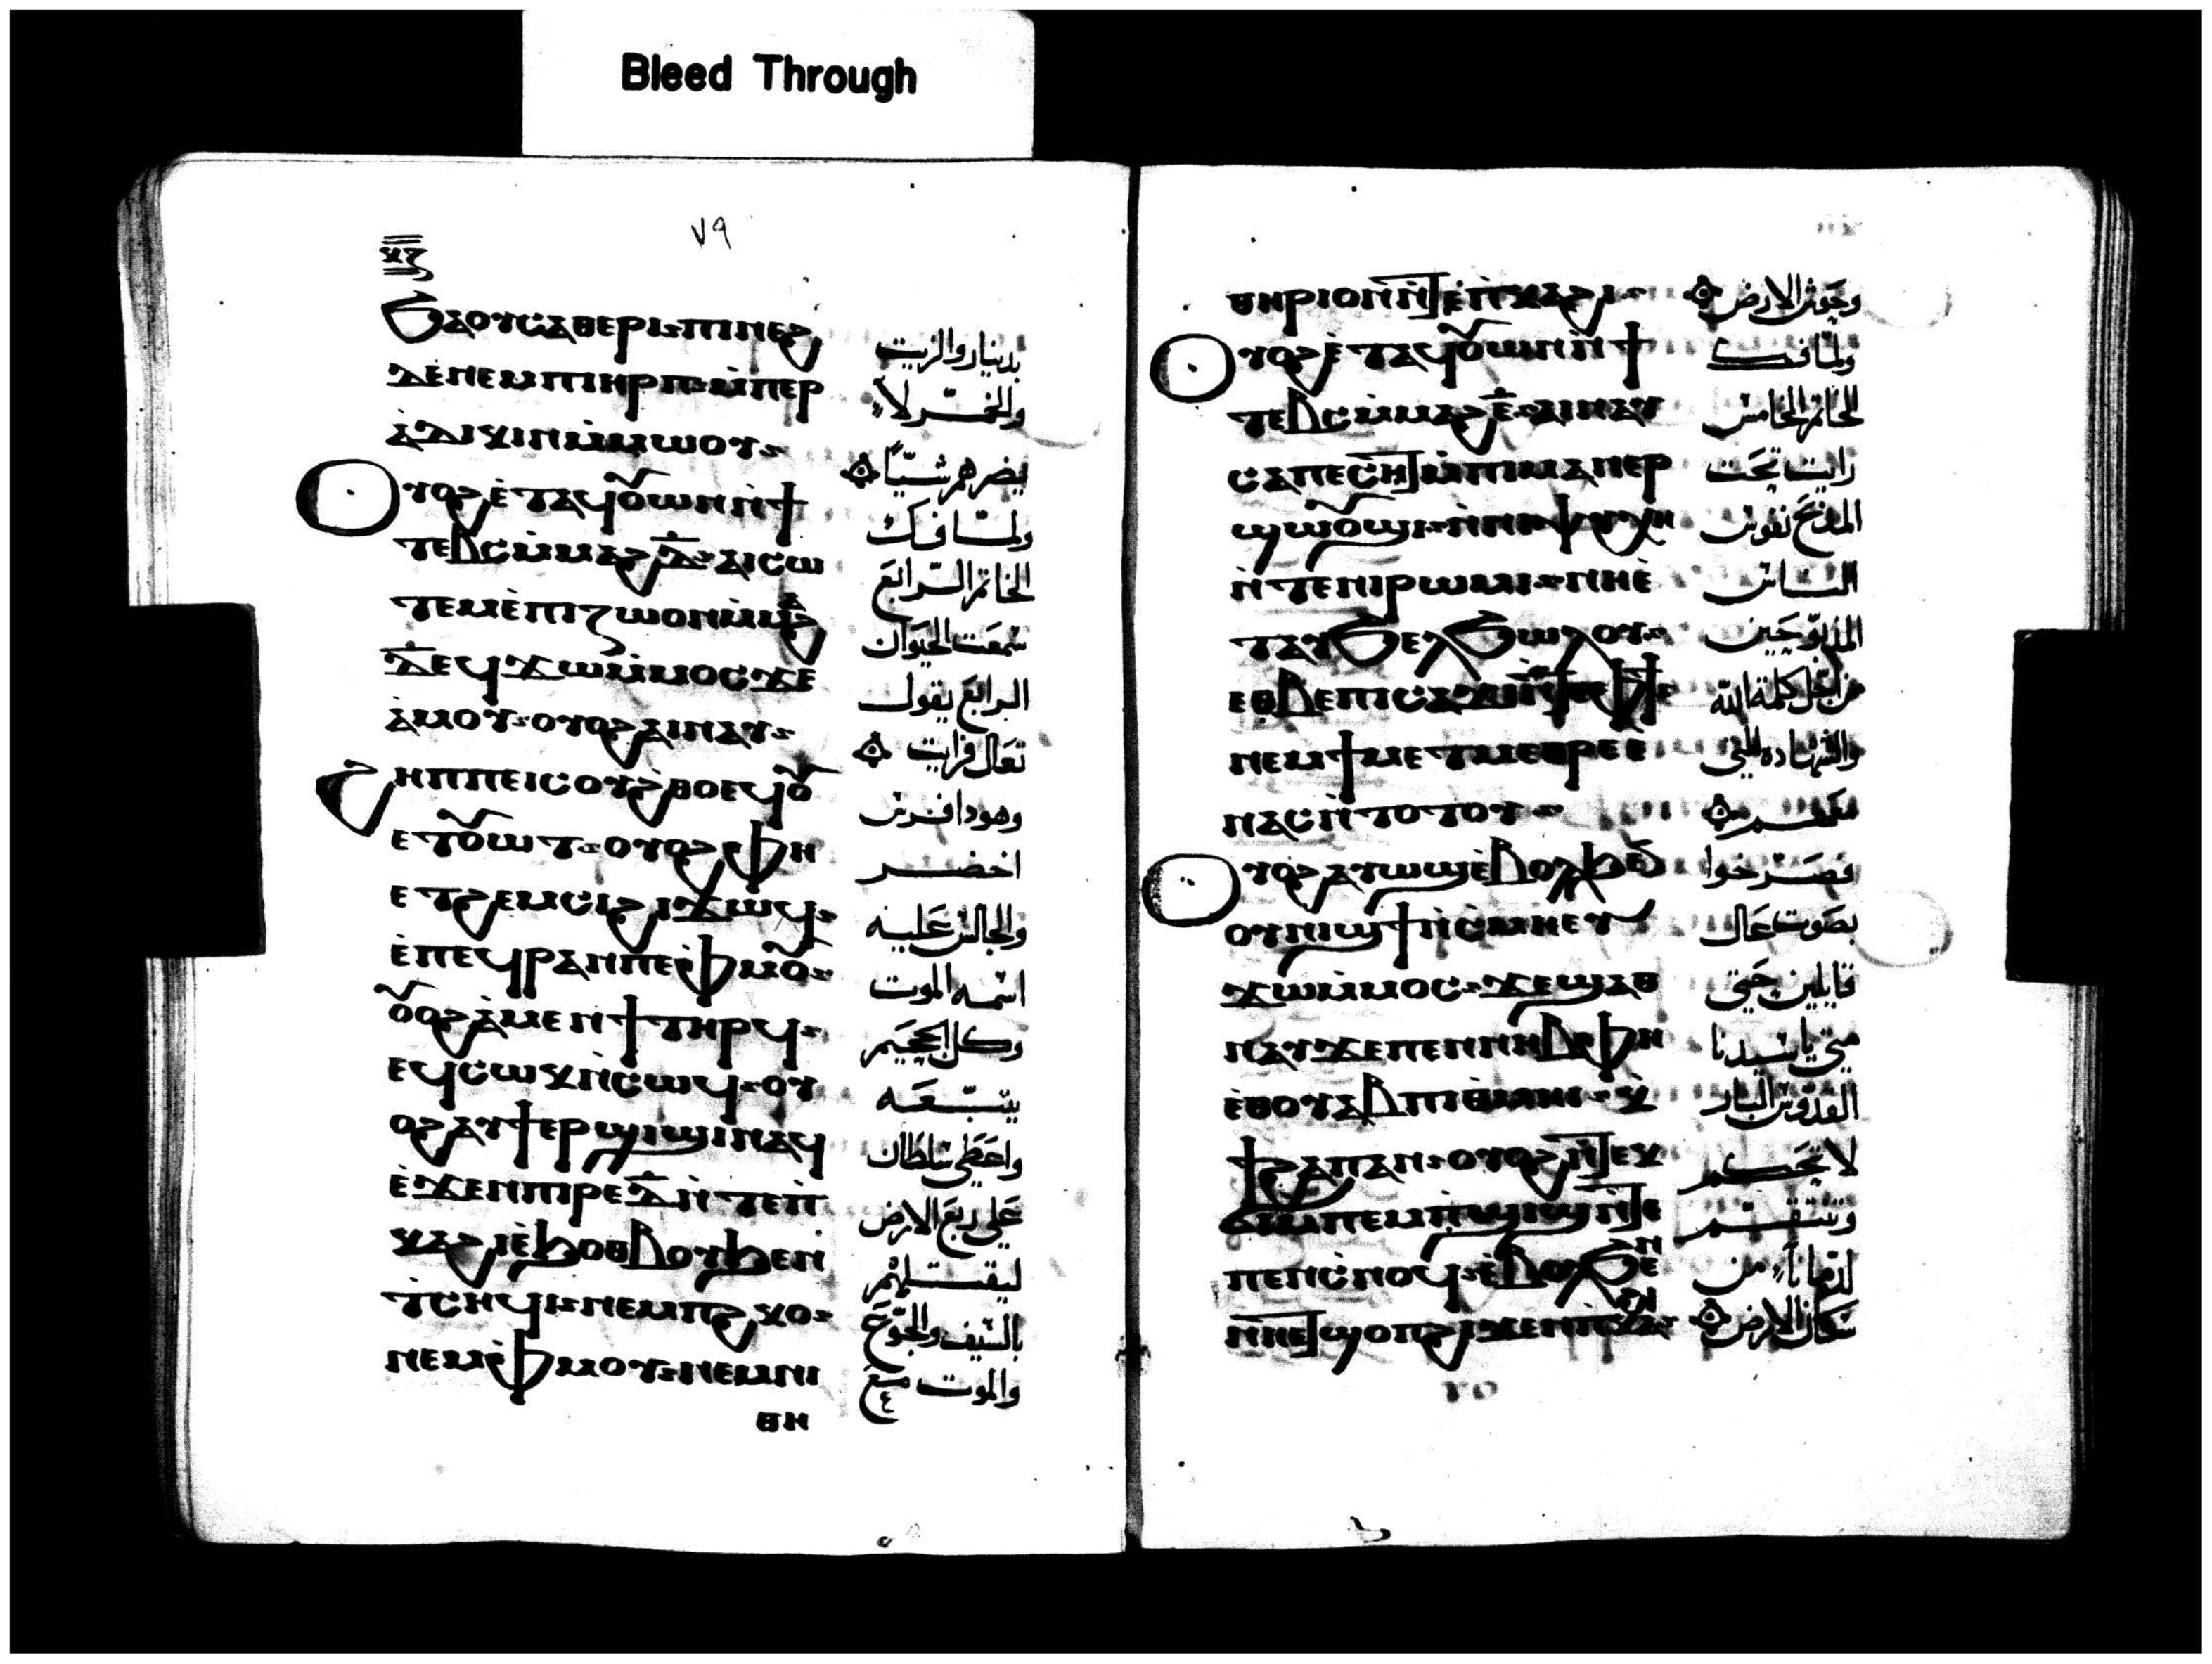 Bleed Through
٧٩
ϭⲁⲟⲩⲥⲁⲑⲉⲣⲓ ⲡⲓⲛⲉϩ
ⲇⲉ ⲛⲉⲙ ⲡⲓⲏⲣⲡ ⲙ̀ⲡⲉⲣ
ⲁ̀ⲇⲓⲕⲓⲛ ⲙ̀ⲙⲱⲟⲩ
ⲟⲩⲟϩ ⲉ̀ⲧⲁϥⲟⲩⲱⲛ ⲛ̀ϯ
ⲧⲉⲃⲥ ⲙ̀ⲙⲁϩ ⲇ̅ ⲁⲓⲥⲱ
ⲧⲉⲙ ⲉ̀ⲡⲓⲍⲱⲟⲛ ⲙ̀ⲙⲁϩ
ⲇ̅ ⲉϥϫⲱ ⲙ̀ⲙⲟⲥ ϫⲉ
ⲁ̀ⲙⲟⲩ ⲟⲩⲟϩ ⲁⲓⲛⲁⲩ
ϩⲏⲡⲡⲉ ⲓⲥ ⲟⲩϩⲑⲟ ⲉϥⲟⲩ
ⲉⲧⲟⲩⲱⲧ ⲟⲩⲟϩ ⲫⲏ
ⲉⲧϩⲉⲙⲥⲓ ϩⲓϫⲱϥ
ⲉ̀ⲡⲉϥⲣⲁⲛ ⲡⲉ ⲫ̀ⲙⲟⲩ
ⲟⲩⲟϩ ⲁ̀ⲙⲉⲛϯ ⲧⲏⲣϥ
ⲉϥⲥⲱⲕ ⲛ̀ⲥⲱϥ ⲟⲩ
ⲟϩ ⲁⲩϯⲉⲣϣⲓϣⲓ ⲛⲁϥ
ⲉ̀ϫⲉⲛ ⲡⲓⲣⲉ ⲇ̅ ⲛ̀ⲧⲉ ⲡ̀
ⲕⲁϩⲓ ⲉ̀ϧⲟⲑⲃⲟⲩ ϧⲉⲛ
ⲧ̀ⲥⲏϥⲓ ⲛⲉⲙ ⲡ̀ϩⲕⲟ
ⲛⲉⲙ ⲫ̀ⲙⲟⲩ ⲛⲉⲙ ⲛⲓ
ⲑⲏ
بدينار والزيت
والخمر لا
يضرهم شيئًا
ولما فك
الخاتم الرابع
سمعت الحيوان
الرابع يقول
تعال فرايت
وهودا فرس
اخضر
والجالس عليه
اسمه الموت
وكل الجحيم
يتبعه
واعطي سلطان
علي ربع الارض
ليقتلهم
بالسيف والجوع
والموت مع
ⲑⲏⲣⲓⲟⲛ ⲛ̀ⲧⲉ ⲡ̀ⲕⲁϩⲓ
ⲟⲩⲟϩ ⲉ̀ⲧⲁϥⲟⲩⲱⲛ ⲛ̀ϯ
ⲧⲉⲃⲥ ⲙ̀ⲙⲁϩ ⲉ̅ ⲁⲓⲛⲁⲩ
ⲥⲁⲡⲉⲥⲏⲧ ⲙ̀ⲡⲓⲙⲁⲛⲉⲣ
ϣⲱⲟⲩϣⲓ ⲛ̀ⲛⲓⲯⲩⲭⲏ
ⲛ̀ⲧⲉ ⲛⲓⲣⲱⲙⲓ ⲛⲏ ⲉ̀
ⲧⲁⲩϧⲉⲗϧⲱⲗⲟⲩ
ⲉⲑⲃⲉ ⲡⲓⲥⲁϫⲓ ⲛ̀ⲧⲉ ⲫϯ
ⲛⲉⲙ ϯⲙⲉⲧⲙⲉⲑⲣⲉ ⲉ
ⲛⲁⲥ ⲛ̀ⲧⲟⲧⲟⲩ
ⲟⲩⲟϩ ⲁⲩⲱϣ ⲉ̀ⲃⲟⲗ ϧⲉⲛ
ⲟⲩⲛⲓϣϯ ⲛ̀ⲥⲙⲏ ⲉⲩ
ϫⲱ ⲙ̀ⲙⲟⲥ ϫⲉ ϣⲁⲑ
ⲛⲁⲩ ϫⲉ ⲡⲉⲛⲛⲏⲃ ⲫⲏ
ⲉ̀ⲑⲟⲩⲁⲃ ⲡⲓⲑⲙⲏⲓ ⲕ̀
ϯϩⲁⲡ ⲁⲛ ⲟⲩⲟϩ ⲛ̀ⲧⲉⲕ
ϭⲓ ⲙ̀ⲡⲉⲙⲡ̀ϣⲓϣ ⲛ̀ⲧⲉ
ⲡⲉⲛⲥⲛⲟϥ ⲉ̀ⲃⲟⲗ ϧⲉⲛ
ⲛⲏ ⲉⲧϣⲟⲡ ϩⲓϫⲉⲛ ⲡ̀ⲕⲁϩⲓ
ⲟⲩ
وحوش الارض
ولما فك
الخاتم الخامس
رايت تحت
المذبح نفوس
الناس
المذبوحين
من اجل كلمة الله
والشهاده التي
معهم
فصرخوا
بصوت عال
قايلين حتي
متي يا سيدنا
القدوس البار
لا تحكم
وتنتقم
لدمانا من
سكان الارض